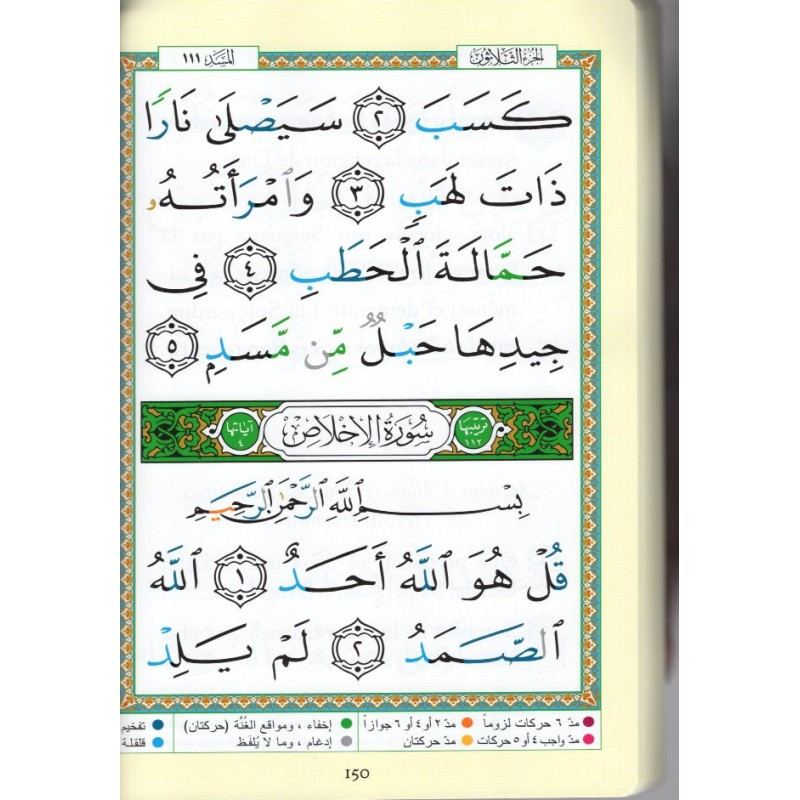 الجزء الثلاثون
المسد ١١١
كَسَبَ ٢ سَيَصْلَىٰ نَارًا
ذَاتَ لَهَبٍ ٣ وَٱمْرَأَتُهُۥ
حَمَّالَةَ ٱلْحَطَبِ ٤ فِى
جِيدِهَا حَبْلٌ مِّن مَّسَدٍ ٥
ترتيبها ١١٢ سُورَةُ الإِخْلَاصِ آياتها ٤
بِسْمِ ٱللَّهِ ٱلرَّحْمَٰنِ ٱلرَّحِيمِ
قُلْ هُوَ ٱللَّهُ أَحَدٌ ١ ٱللَّهُ
ٱلصَّمَدُ ٢ لَمْ يَلِدْ
مدّ ٦ حركات لزوماً مدّ ٢ أو ٤ أو ٦ جوازاً إخفاء، ومواقع الغُنَّة (حركتان) تفخيم
مدّ واجب ٤ أو ٥ حركات مدّ حركتان إدغام، وما لا يُلفَظ قلقلة
150